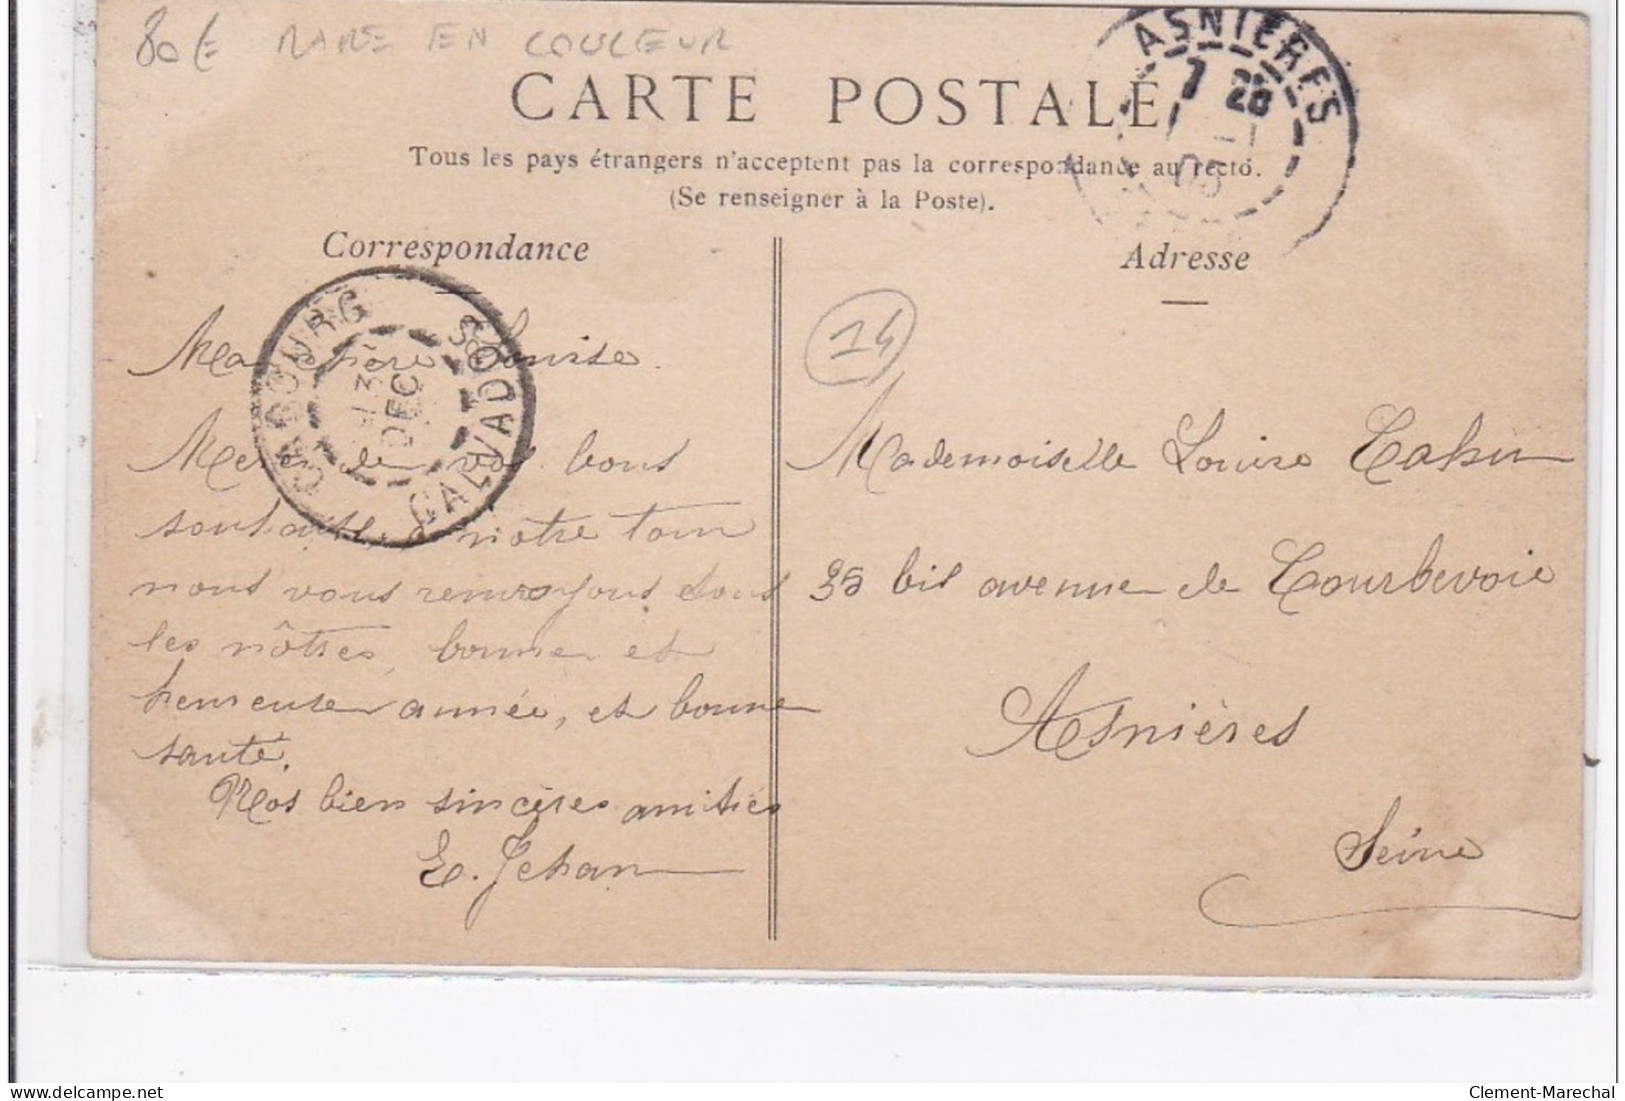 80 € RARE EN COULEUR
CARTE POSTALE
Tous les pays étrangers n'acceptent pas la correspondance au recto.
(Se renseigner à la Poste).
ASNIERES
7 28
05
Correspondance
CABOURG
CALVADOS
DEC
Ma chère Louise.
Merci de vos bons
souhaits, à notre tour
nous vous renvoyons tous
les nôtres, bonne et
heureuse année, et bonne
santé.
Nos bien sincères amitiés
E. Jehan
Adresse
14
Mademoiselle Louise Cahu
35 bis avenue de Courbevoie
Asnières
Seine
delcampe.net
Clement-Marechal